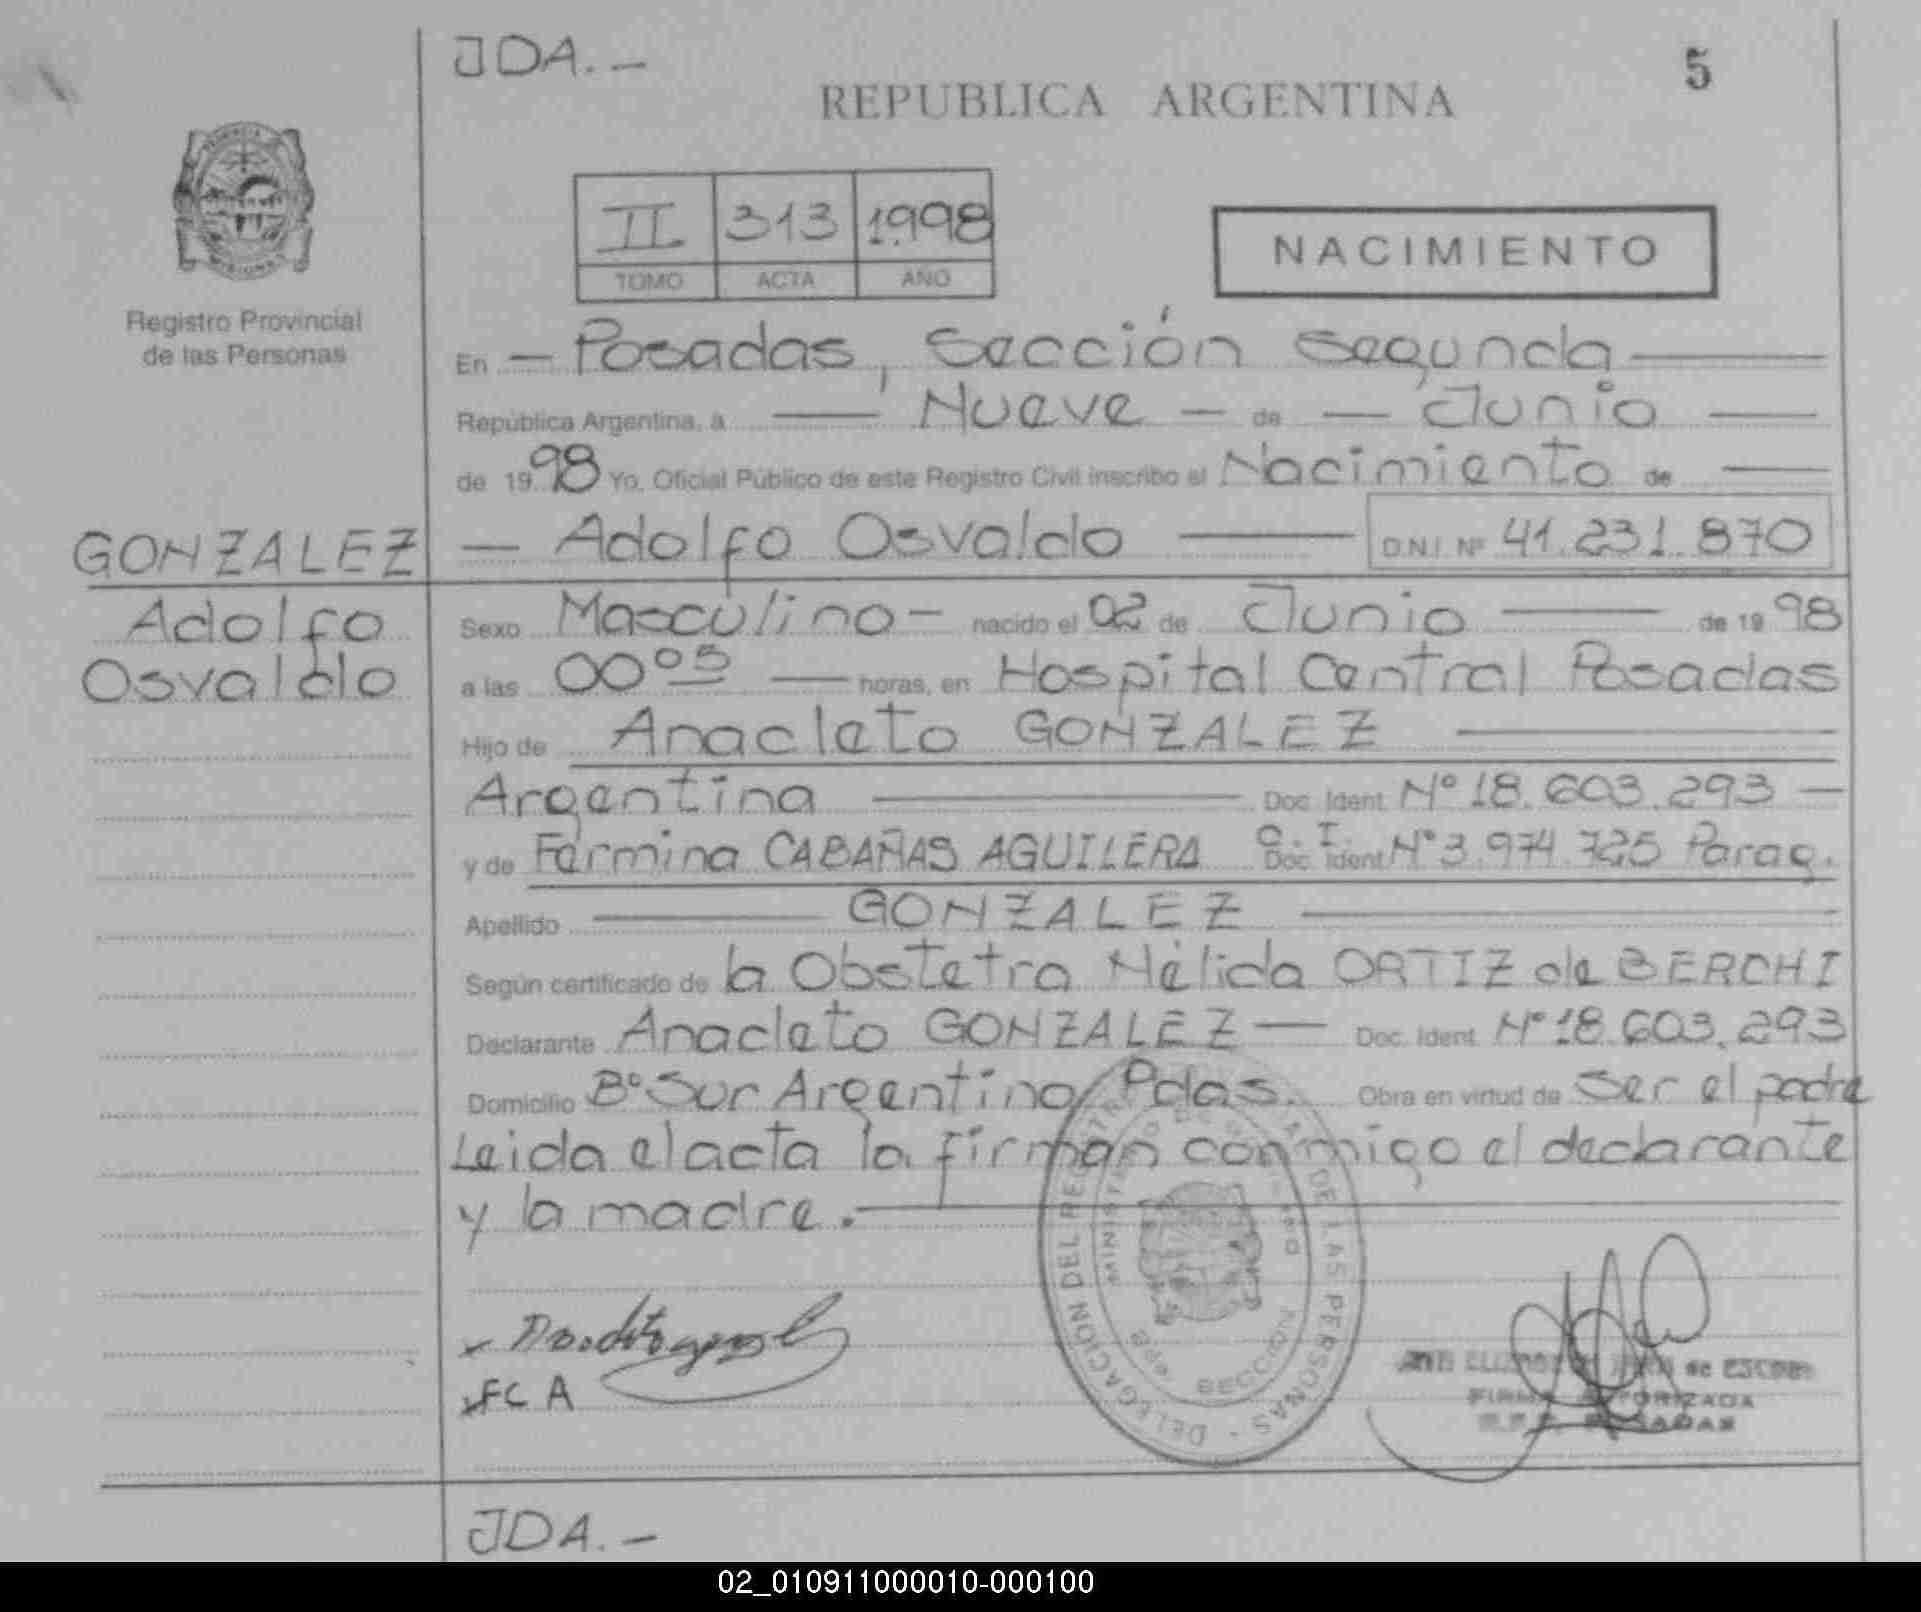 JDA.-
5
REPUBLICA ARGENTINA
II 313 1998
TOMO ACTA AÑO
NACIMIENTO
Registro Provincial
de las Personas
En — Posadas, Sección Segunda —
República Argentina, a — Nueve — de — Junio —
de 1998 Yo, Oficial Público de este Registro Civil inscribo el Nacimiento de —
GONZALEZ
— Adolfo Osvaldo — D.N.I. Nº 41.231.870
Adolfo
Osvaldo
Sexo Masculino — nacido el 02 de Junio — de 1998
a las 00 05 — horas, en Hospital Central Posadas
Hijo de Anacleto GONZALEZ —
Argentina — Doc. Ident. Nº 18.603.293 —
y de Fermina CABAÑAS AGUILERA C. I. Doc. Ident. Nº 3.974.725 Parag.
Apellido — GONZALEZ —
Según certificado de la Obstetra Nélida ORTIZ de BERCHI
Declarante Anacleto GONZALEZ — Doc. Ident. Nº 18.603.293
Domicilio Bº Sur Argentino Pdas. Obra en virtud de Ser el padre
Leida el acta la firman conmigo el declarante
y la madre. —
x
x FC A
DELEGACION DEL REGISTRO DE LAS PERSONAS
MINISTERIO DE
SECCION
de ESCOBAR
FIRMA AUTORIZADA
POSADAS
JDA.-
02_010911000010-000100